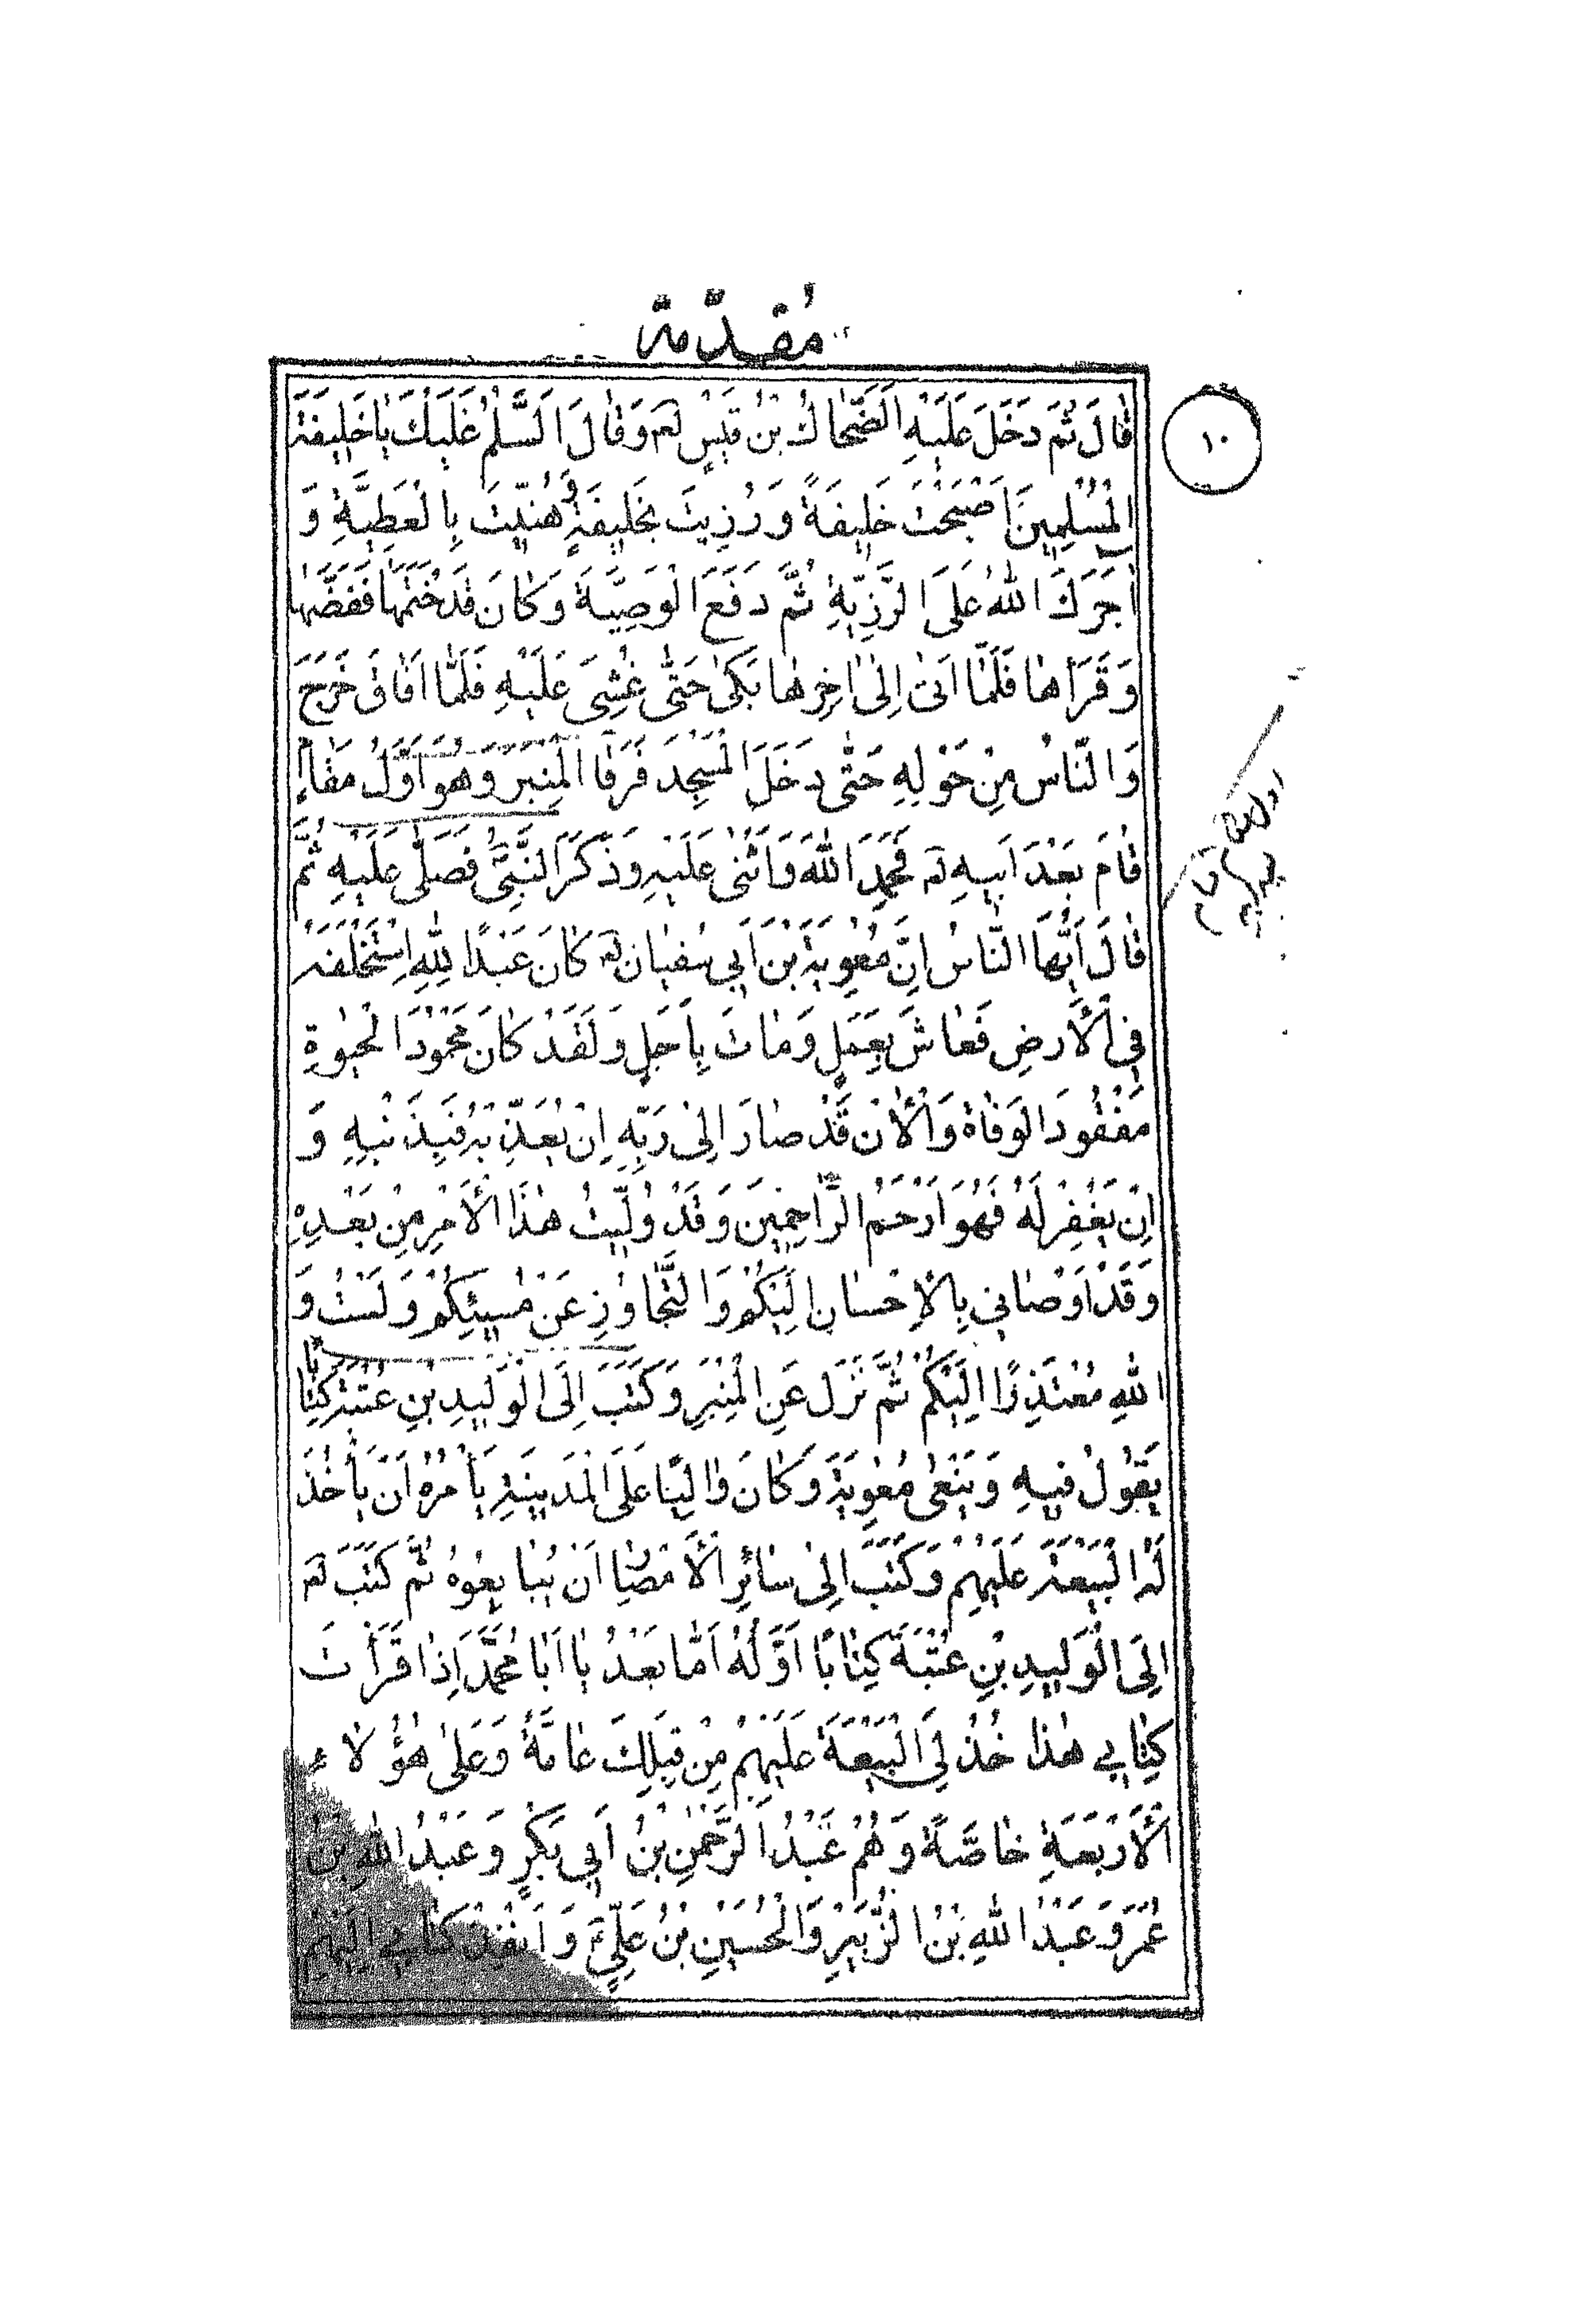 مُقَدَّمَة
١٠
قٰالَ ثُمَّ دَخَلَ عَلَيْهِ الضَّحّٰاكُ بْنُ قَيْسٍ لعہ وَقٰالَ اَلسَّلٰمُ عَلَيْكَ يٰا خَلِيفَةَ
الْمُسْلِمِينَ اَصْبَحْتَ خَلِيفَةً وَ رُزِيتَ بِخَلِيفَةٍ هُنِّيتَ بِالْعَطِيَّةِ وَ
اٰجَرَكَ اللّٰهُ عَلَى الرَّزِيَّةِ ثُمَّ دَفَعَ الْوَصِيَّةَ وَكٰانَ قَدْ خَتَمَهٰا فَفَضَّهٰا
وَقَرَأَهٰا فَلَمّٰا اَتىٰ اِلىٰ اٰخِرِهٰا بَكىٰ حَتّٰى غُشِيَ عَلَيْهِ فَلَمّٰا اَفٰاقَ خَرَجَ
وَالنّٰاسُ مِنْ حَوْلِهِ حَتّٰى دَخَلَ الْمَسْجِدَ فَرَقَا الْمِنْبَرَ وَهُوَ اَوَّلُ مَقٰامٍ
قٰامَ بَعْدَ اَبِيهِ لہ فَحَمِدَ اللّٰهَ وَاَثْنىٰ عَلَيْهِ وَذَكَرَ النَّبِيَّ فَصَلّٰى عَلَيْهِ ثُمَّ
قٰالَ اَيُّهَا النّٰاسُ اِنَّ مُعٰوِيَةَ بْنَ اَبِي سُفْيٰانَ لہ كٰانَ عَبْدًا لِلّٰهِ اِسْتَخْلَفَهُ
فِي الْأَرْضِ فَعٰاشَ بِعَمَلٍ وَمٰاتَ بِاَجَلٍ وَلَقَدْ كٰانَ مَحْمُودَ الْحَيٰوةِ
مَفْقُودَ الْوَفٰاةِ وَالْأٰنَ قَدْ صٰارَ اِلىٰ رَبِّهِ اِنْ يُعَذِّبْهُ فَبِذَنْبِهِ وَ
اِنْ يَغْفِرْ لَهُ فَهُوَ اَرْحَمُ الرّٰاحِمِينَ وَقَدْ وُلِّيتُ هٰذَا الْأَمْرِ مِنْ بَعْدِهِ
وَقَدْ اَوْصٰانِي بِالْإِحْسٰانِ اِلَيْكُمْ وَالتَّجٰاوُزِ عَنْ مُسِيئِكُمْ وَلَسْتُ وَ
اللّٰهِ مُعْتَذِرًا اِلَيْكُمْ ثُمَّ نَزَلَ عَنِ الْمِنْبَرِ وَكَتَبَ اِلَى الْوَلِيدِ بْنِ عُتْبَةَ كِتٰابًا
يَقُولُ فِيهِ وَيَنْعىٰ مُعٰوِيَةَ وَكٰانَ وٰالِيًا عَلَى الْمَدِينَةِ يَأْمُرُهُ اَنْ يَأْخُذَ
لَهُ الْبَيْعَةَ عَلَيْهِمْ وَكَتَبَ اِلىٰ سٰائِرِ الْأَمْصٰارِ اَنْ يُبٰايِعُوهُ ثُمَّ كَتَبَ لہ
اِلَى الْوَلِيدِ بْنِ عُتْبَةَ كِتٰابًا اَوَّلُهُ اَمّٰا بَعْدُ يٰا اَبٰا مُحَمَّدَ اِذٰا قَرَأْتَ
كِتٰابِي هٰذٰا خُذْ لِيَ الْبَيْعَةَ عَلَيْهِمْ مِنْ قِبَلِكَ عٰامَّةً وَعَلىٰ هٰؤُلٰاءِ
الْأَرْبَعَةِ خٰاصَّةً وَهُمْ عَبْدُ الرَّحْمٰنِ بْنُ اَبِي بَكْرٍ وَعَبْدُ اللّٰهِ بْنُ
عُمَرَ وَعَبْدُ اللّٰهِ بْنُ الزُّبَيْرِ وَالْحُسَيْنِ بْنُ عَلِيٍّ وَاَنْفِذْ كِتٰابِي اِلَيْهِمْ